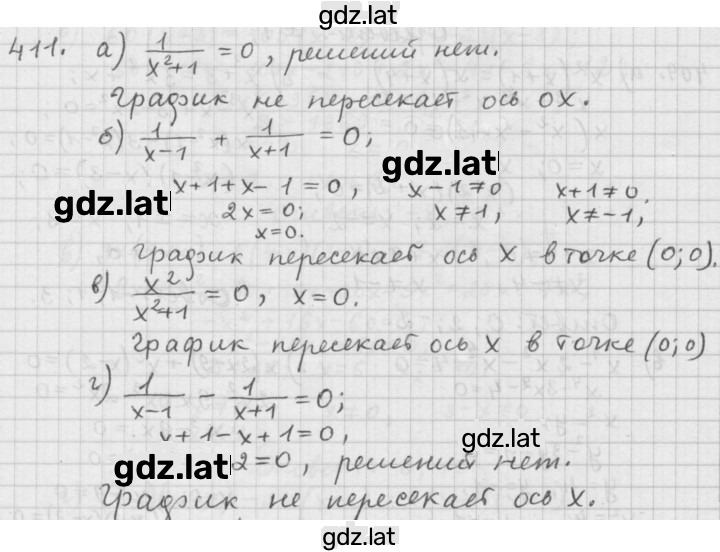 gdz.lat
411. а) 1/(x²+1) = 0, решений нет.
График не пересекает ось OX.
б) 1/(x-1) + 1/(x+1) = 0;
gdz.lat
x+1+x-1=0, x-1≠0 x+1≠0.
gdz.lat
2x=0; x≠1, x≠-1,
x=0.
График пересекает ось X в точке (0;0).
в) x²/(x²+1) = 0, x=0.
График пересекает ось X в точке (0;0)
г) 1/(x-1) - 1/(x+1) = 0;
x+1-x+1=0,
gdz.lat
gdz.lat 2=0, решений нет.
График не пересекает ось X.
gdz.lat